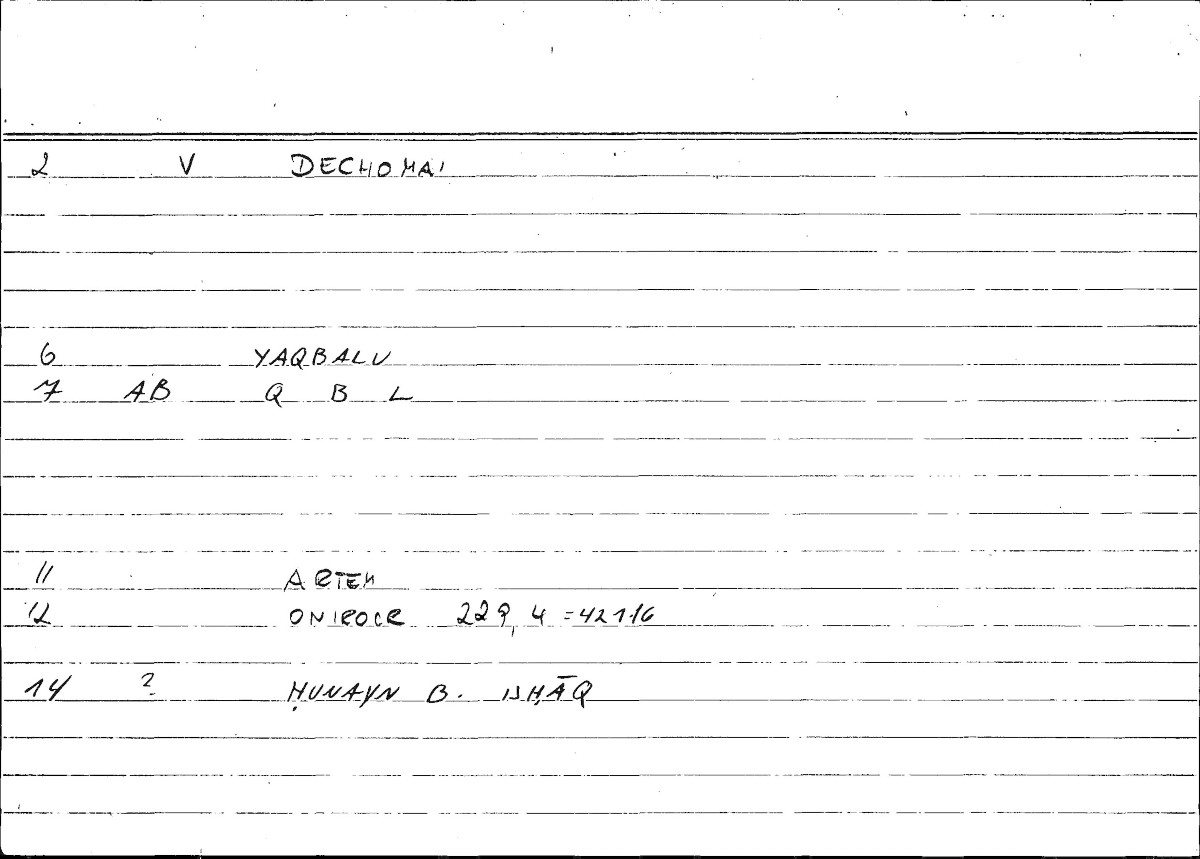 2 V DECHOMAI
6 YAQBALU
7 AB Q B L
11 ARTEM
12 ONIROCR 229, 4 = 421.16
14 ? ḤUNAYN B. ISḤĀQ